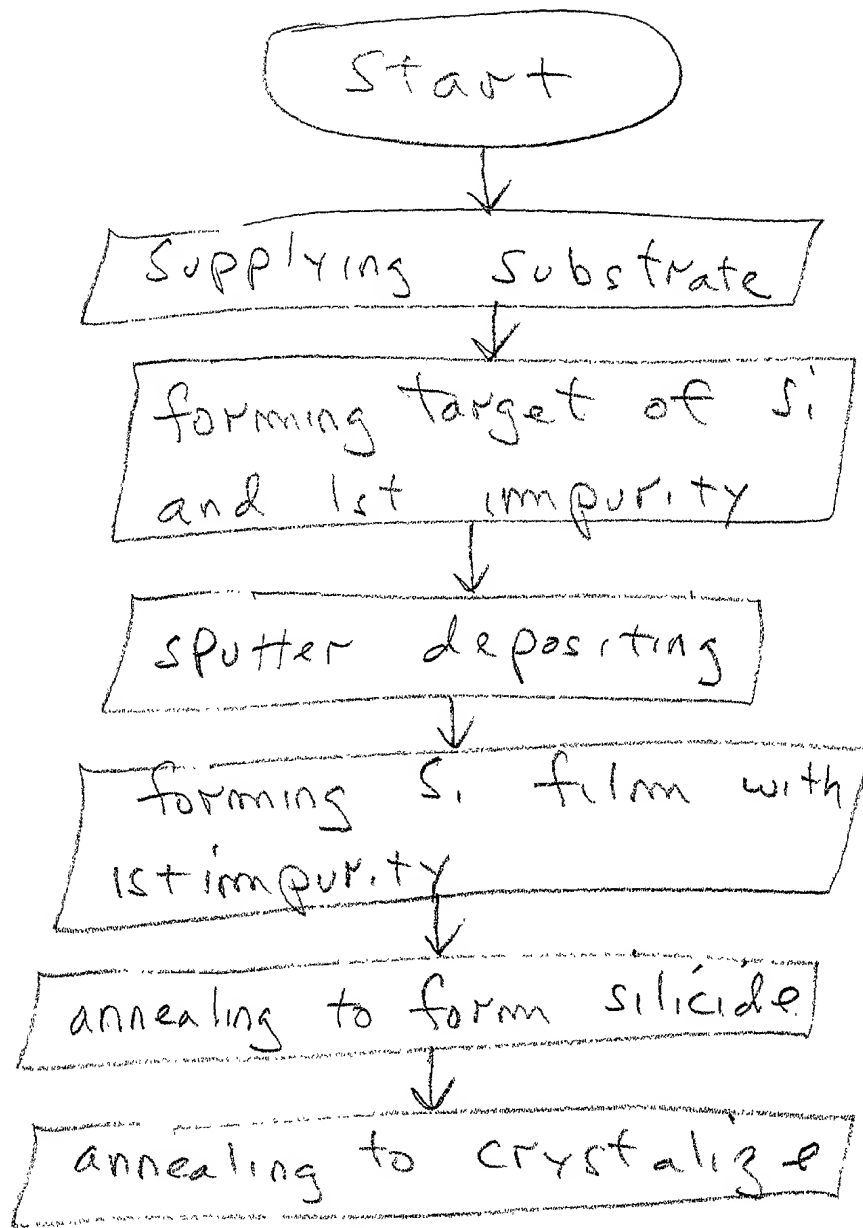 Start
Supplying substrate
forming target of Si
and 1st impurity
sputter depositing
forming Si film with
1st impurity
annealing to form silicide
annealing to crystalize